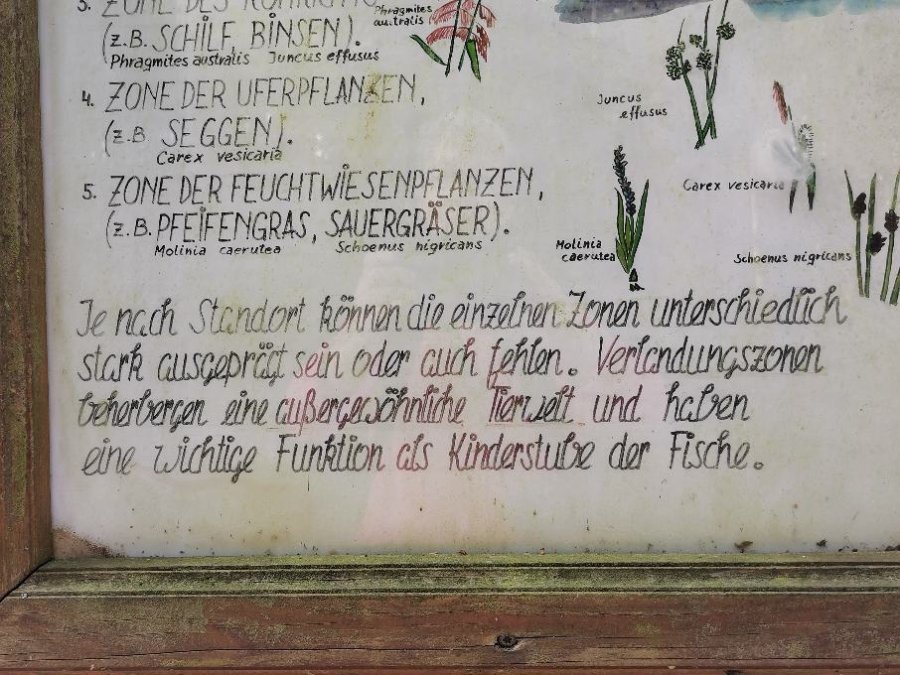 3. ZONE DES RÖHRICHTS
(z.B. SCHILF, BINSEN).
Phragmites australis Juncus effusus
4. ZONE DER UFERPFLANZEN,
(z.B SEGGEN).
Carex vesicaria
5. ZONE DER FEUCHTWIESENPFLANZEN,
(z.B. PFEIFENGRAS, SAUERGRÄSER).
Molinia caerutea Schoenus nigricans
Phragmites
australis
Juncus
effusus
Carex vesicaria
Molinia
caerutea
Schoenus nigricans
Je nach Standort können die einzelnen Zonen unterschiedlich
stark ausgeprägt sein oder auch fehlen. Verlandungszonen
beherbergen eine außergewöhnliche Tierwelt und haben
eine wichtige Funktion als Kinderstube der Fische.